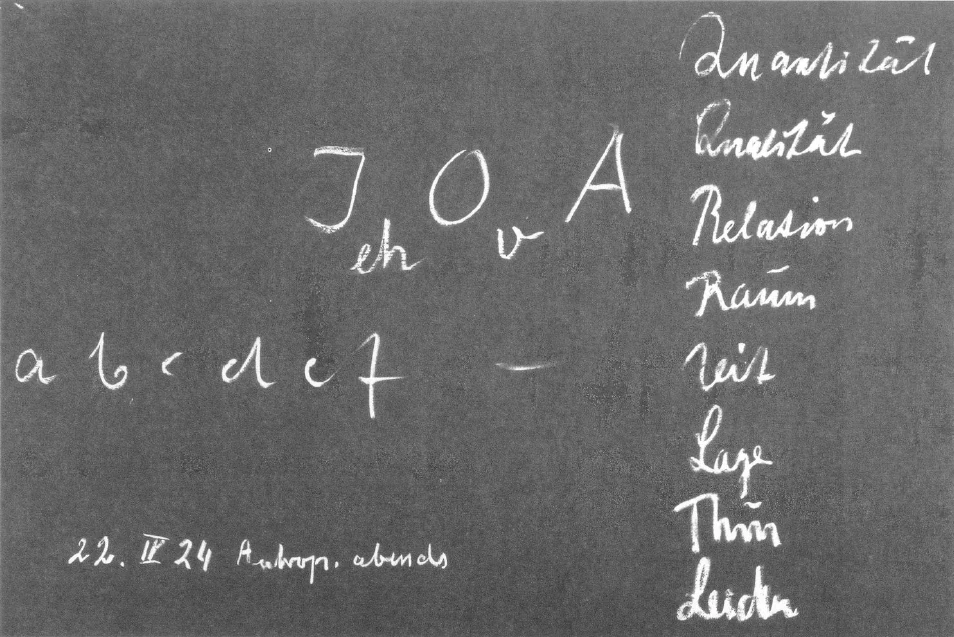 J O A
eh v
a b c d e f —
22. IV 24 Antrop. abends
Quantität
Qualität
Relation
Raum
Zeit
Lage
Thun
Leiden